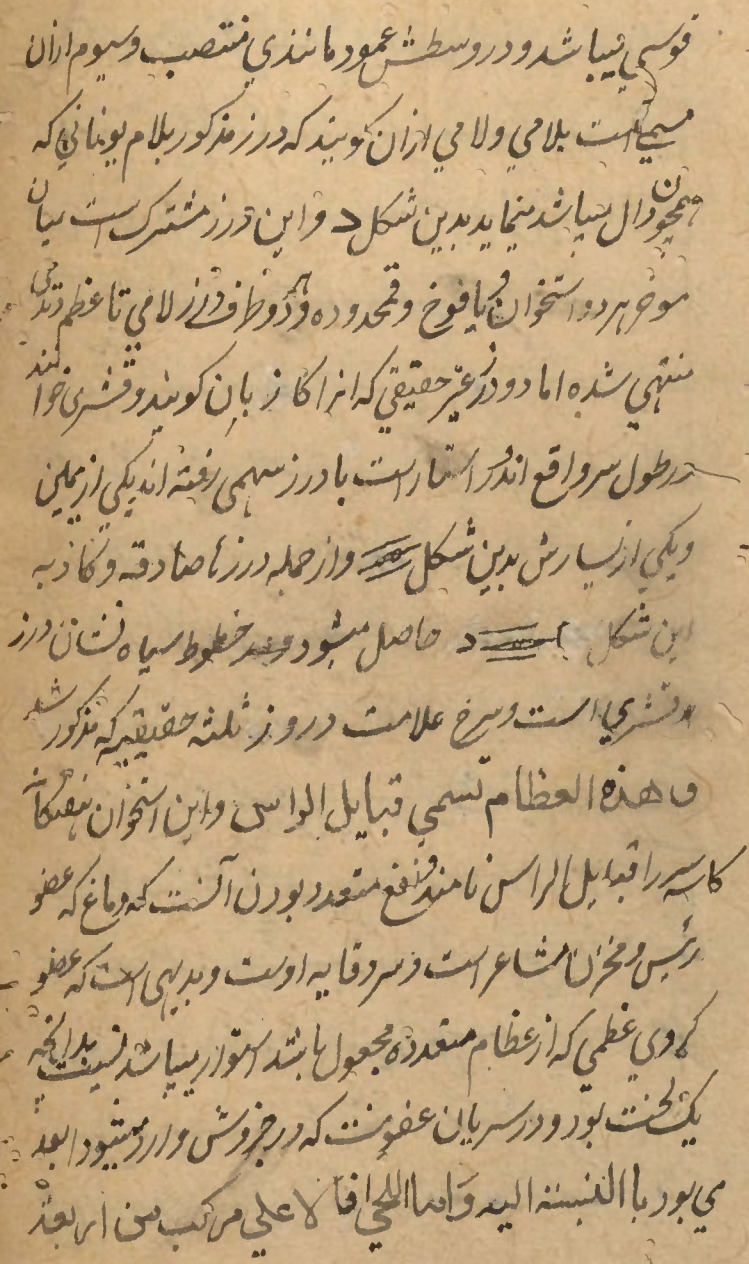 قوسي ميباشد و در وسطش عمود مانندي منتصب و سيوم ازان
مسمي است بلامي و لامي ازان گويند كه درز مذكور بلام يوناني كه
همچون دال ميباشد مينمايد بدين شكل > و اين درز مشترك است ميان
موخر هر دو استخوان يافوخ و قمحدوده و هر دو طرف درز لامي تا عظم وتدي
منتهي شده اما دو درز غير حقيقي كه انرا كاذبان گويند و قشري خوانند
در طول سر واقع اند و راستا راست با درز سهمي رفته اند يكي از يمين
و يكي از يسارش بدين شكل و از جمله درزها صادقه و كاذبه
اين شكل حاصل ميشود و خطوط سياه نشان درز
قشري است و سرخ علامت دروز ثلثه حقيقيه كه مذكور شد
و هذه العظام تسمي قبايل الراس و اين استخوان هفتگانه
كاسه سر را قبايل الراس نامند و نفع متعدد بودن آنست كه دماغ كه عضو
رئيس و مخزن مشاعر است و سر وقايه اوست و بديهي است كه عضو
كروي عظمي كه از عظام متعدده مجعول باشد استوار ميباشد نسبت بدانچه
يك لخت بود و در سريان عفونت كه در جزوش وارد ميشود ابعد
مي بود با النسبته اليه و اما اللحي افالاعلي مركب من اربعة